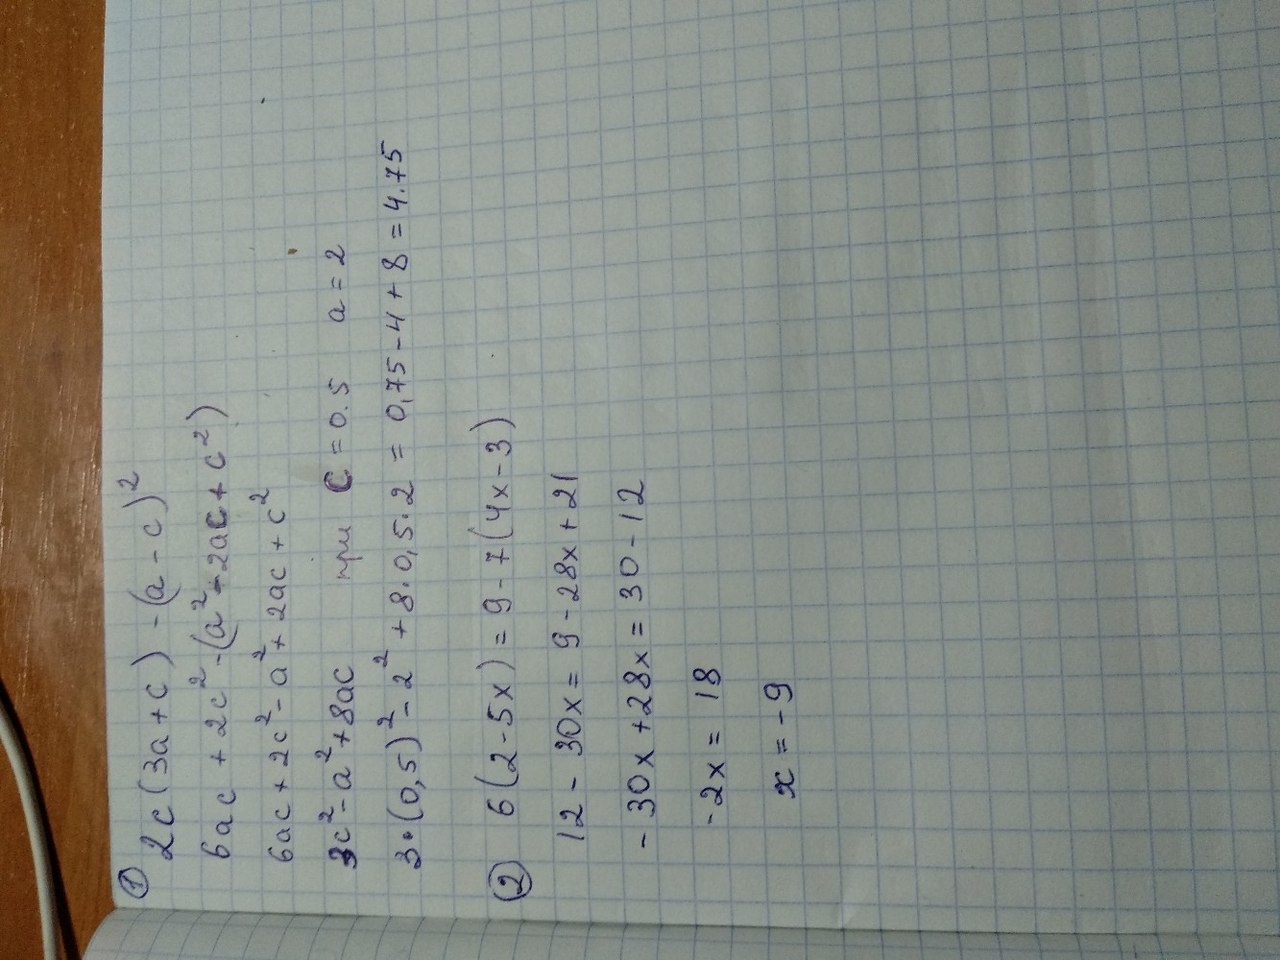 ① 2c(3a+c) - (a-c)²
6ac + 2c² - (a² - 2ac + c²)
6ac + 2c² - a² + 2ac + c²
3c² - a² + 8ac при c = 0.5 a = 2
3·(0,5)² - 2² + 8·0,5·2 = 0,75 - 4 + 8 = 4.75
② 6(2-5x) = 9 - 7(4x-3)
12 - 30x = 9 - 28x + 21
-30x + 28x = 30 - 12
-2x = 18
x = -9